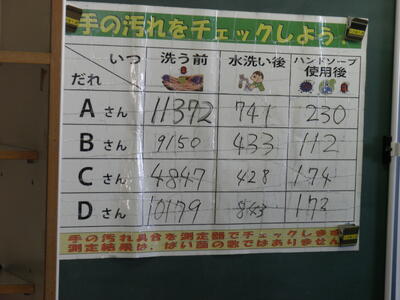 手の汚れをチェックしよう!
いつ 洗う前 水洗い後 ハンドソープ使用後
だれ
Aさん 11372 741 230
Bさん 9150 433 112
Cさん 4847 428 174
Dさん 10179 843 173
手の汚れ具合を測定器でチェックします
測定結果は、ばい菌の数ではありません